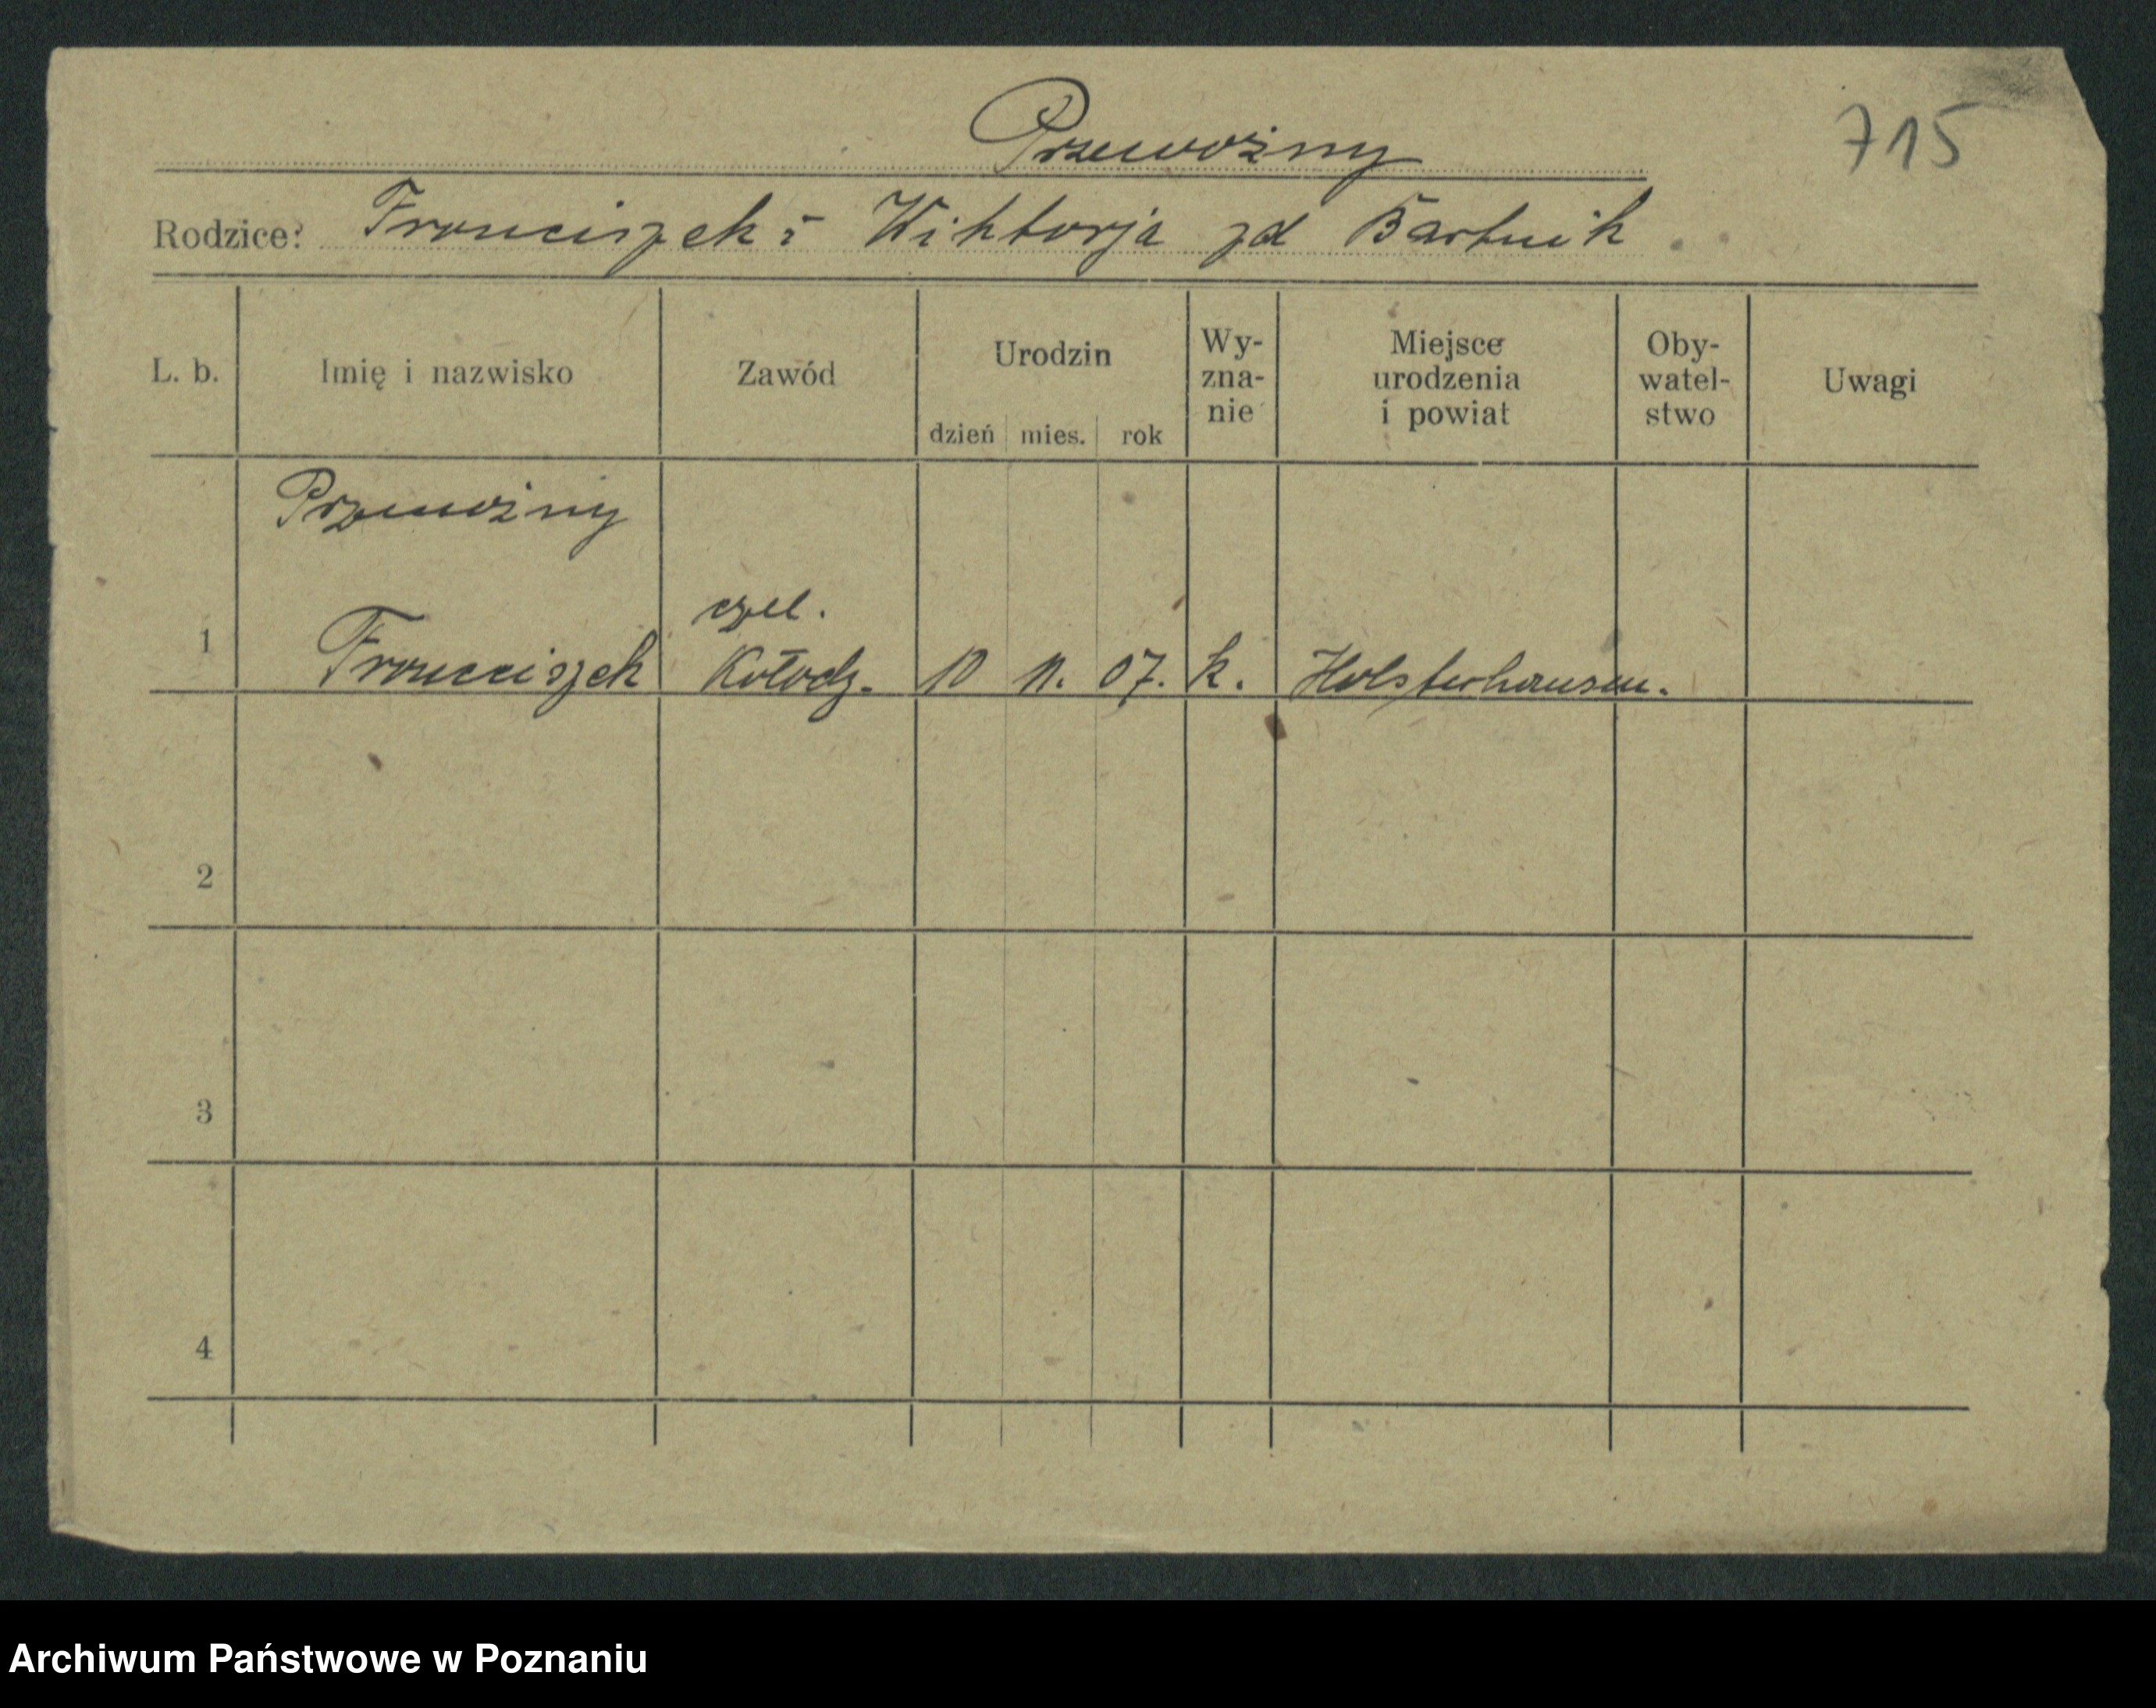 Przewoźny
715
Rodzice: Franciszek i Wiktorja zd Bartnik
L. b. Imię i nazwisko Zawód Urodzin Wy-zna-nie Miejsce urodzenia i powiat Oby-watel-stwo Uwagi
dzień mies. rok
Przewoźny
czel.
1 Franciszek Kołodz. 10 11. 07. k. Holsterhausen.
2
3
4
Archiwum Państwowe w Poznaniu